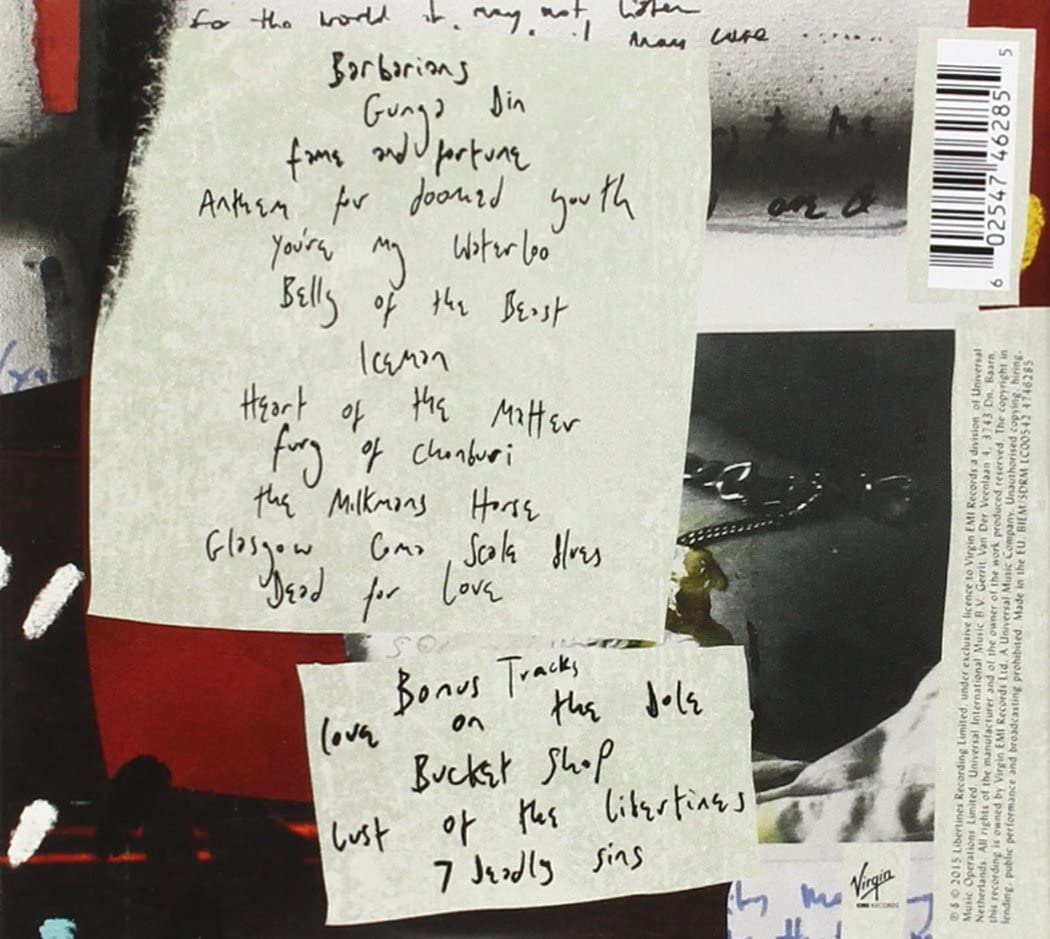 for the world it may not listen
may care .......
Barbarians
Gunga Din
fame and fortune
Anthem for doomed youth
You're my Waterloo
Belly of the Beast
Iceman
Heart of the Matter
fury of chonburi
the Milkmans Horse
Glasgow Coma Scale Blues
Dead for Love
Bonus Tracks
love on the dole
Bucket Shop
Lust of the Libertines
7 deadly sins
and
6 02547 46285 5
℗ & © 2015 Libertines Recording Limited, under exclusive licence to Virgin EMI Records a division of Universal
Music Operations Limited. Universal International Music B.V. Gerrit Van Der Veenlaan 4, 3743 Dn, Baarn,
Netherlands. All rights of the manufacturer and of the owner of the work produced reserved. The copyright in
this recording is owned by Virgin EMI Records Ltd. A Universal Music Company. Unauthorised copying, hiring,
lending, public performance and broadcasting prohibited. Made in the EU. BIEM/SDRM LC00542 4746285
Virgin
EMI RECORDS